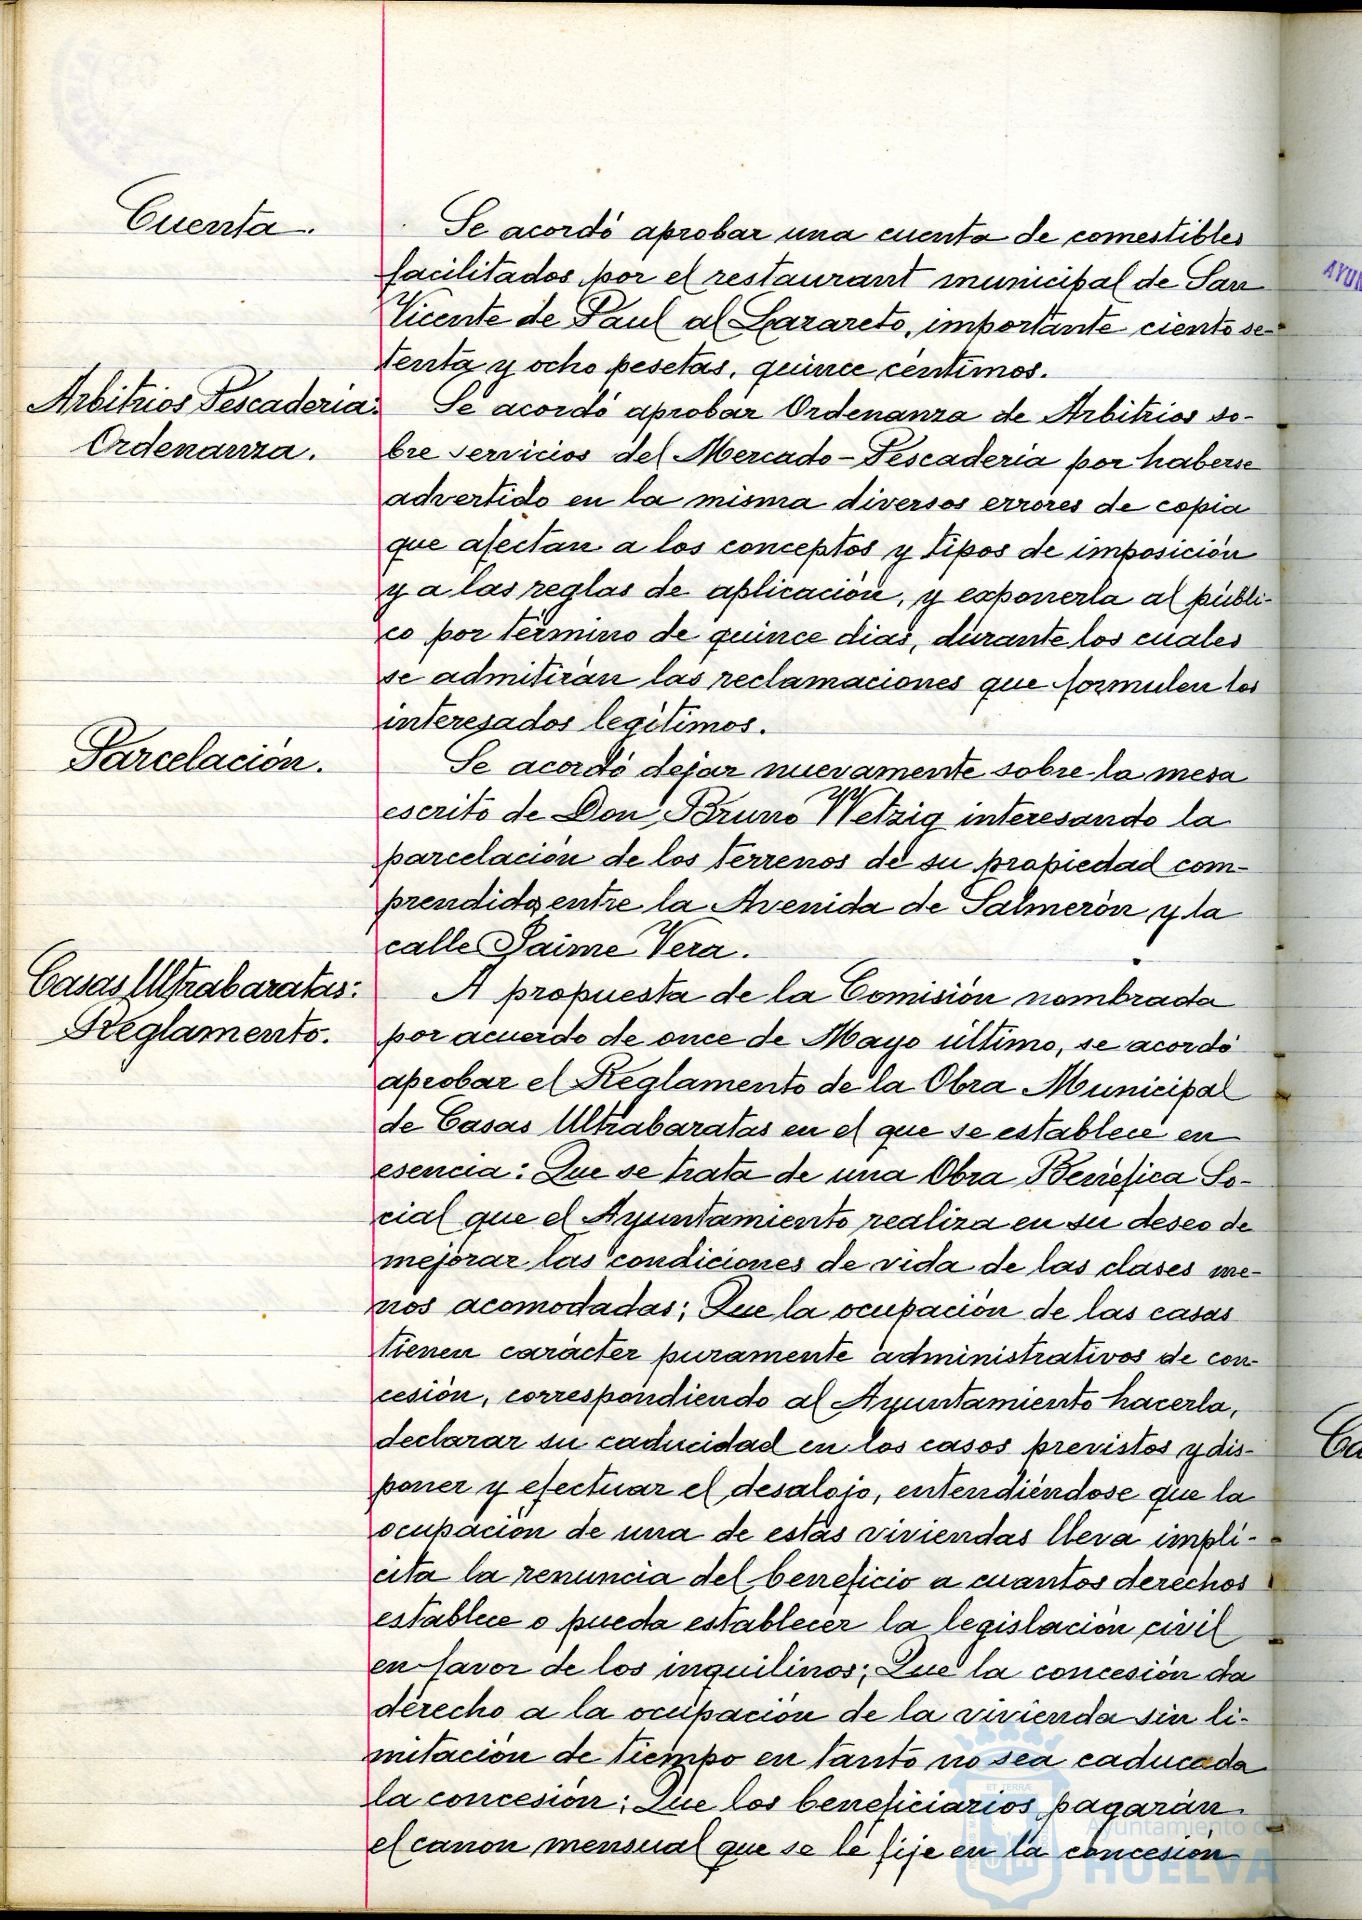 Cuenta.
Se acordó aprobar una cuenta de comestibles
facilitados por el restaurant municipal de San
Vicente de Paul al Lazareto, importante ciento se-
tenta y ocho pesetas, quince céntimos.
Arbitrios Pescaderia:
Ordenanza.
Se acordó aprobar Ordenanza de Arbitrios so-
bre servicios del Mercado-Pescaderia por haberse
advertido en la misma diversos errores de copia
que afectan a los conceptos y tipos de imposición
y a las reglas de aplicación, y exponerla al públi-
co por término de quince dias, durante los cuales
se admitirán las reclamaciones que formulen los
interesados legítimos.
Parcelación.
Se acordó dejar nuevamente sobre la mesa
escrito de Don Bruno Wetzig interesando la
parcelación de los terrenos de su propiedad com-
prendida entre la Avenida de Salmerón y la
calle Jaime Vera.
Casas Ultrabaratas:
Reglamento.
A propuesta de la Comisión nombrada
por acuerdo de once de Mayo último, se acordó
aprobar el Reglamento de la Obra Municipal
de Casas Ultrabaratas en el que se establece en
esencia: Que se trata de una Obra Benéfica So-
cial que el Ayuntamiento realiza en su deseo de
mejorar las condiciones de vida de las clases me-
nos acomodadas; Que la ocupación de las casas
tienen carácter puramente administrativos de con-
cesión, correspondiendo al Ayuntamiento hacerla,
declarar su caducidad en los casos previstos y dis-
poner y efectuar el desalojo, entendiéndose que la
ocupación de una de estas viviendas lleva implí-
cita la renuncia del beneficio a cuantos derechos
establece o pueda establecer la legislación civil
en favor de los inquilinos; Que la concesión da
derecho a la ocupación de la vivienda sin li-
mitación de tiempo en tanto no sea caducada
la concesión; Que los beneficiarios pagarán
el canon mensual que se le fije en la concesión
Ayuntamiento de
HUELVA